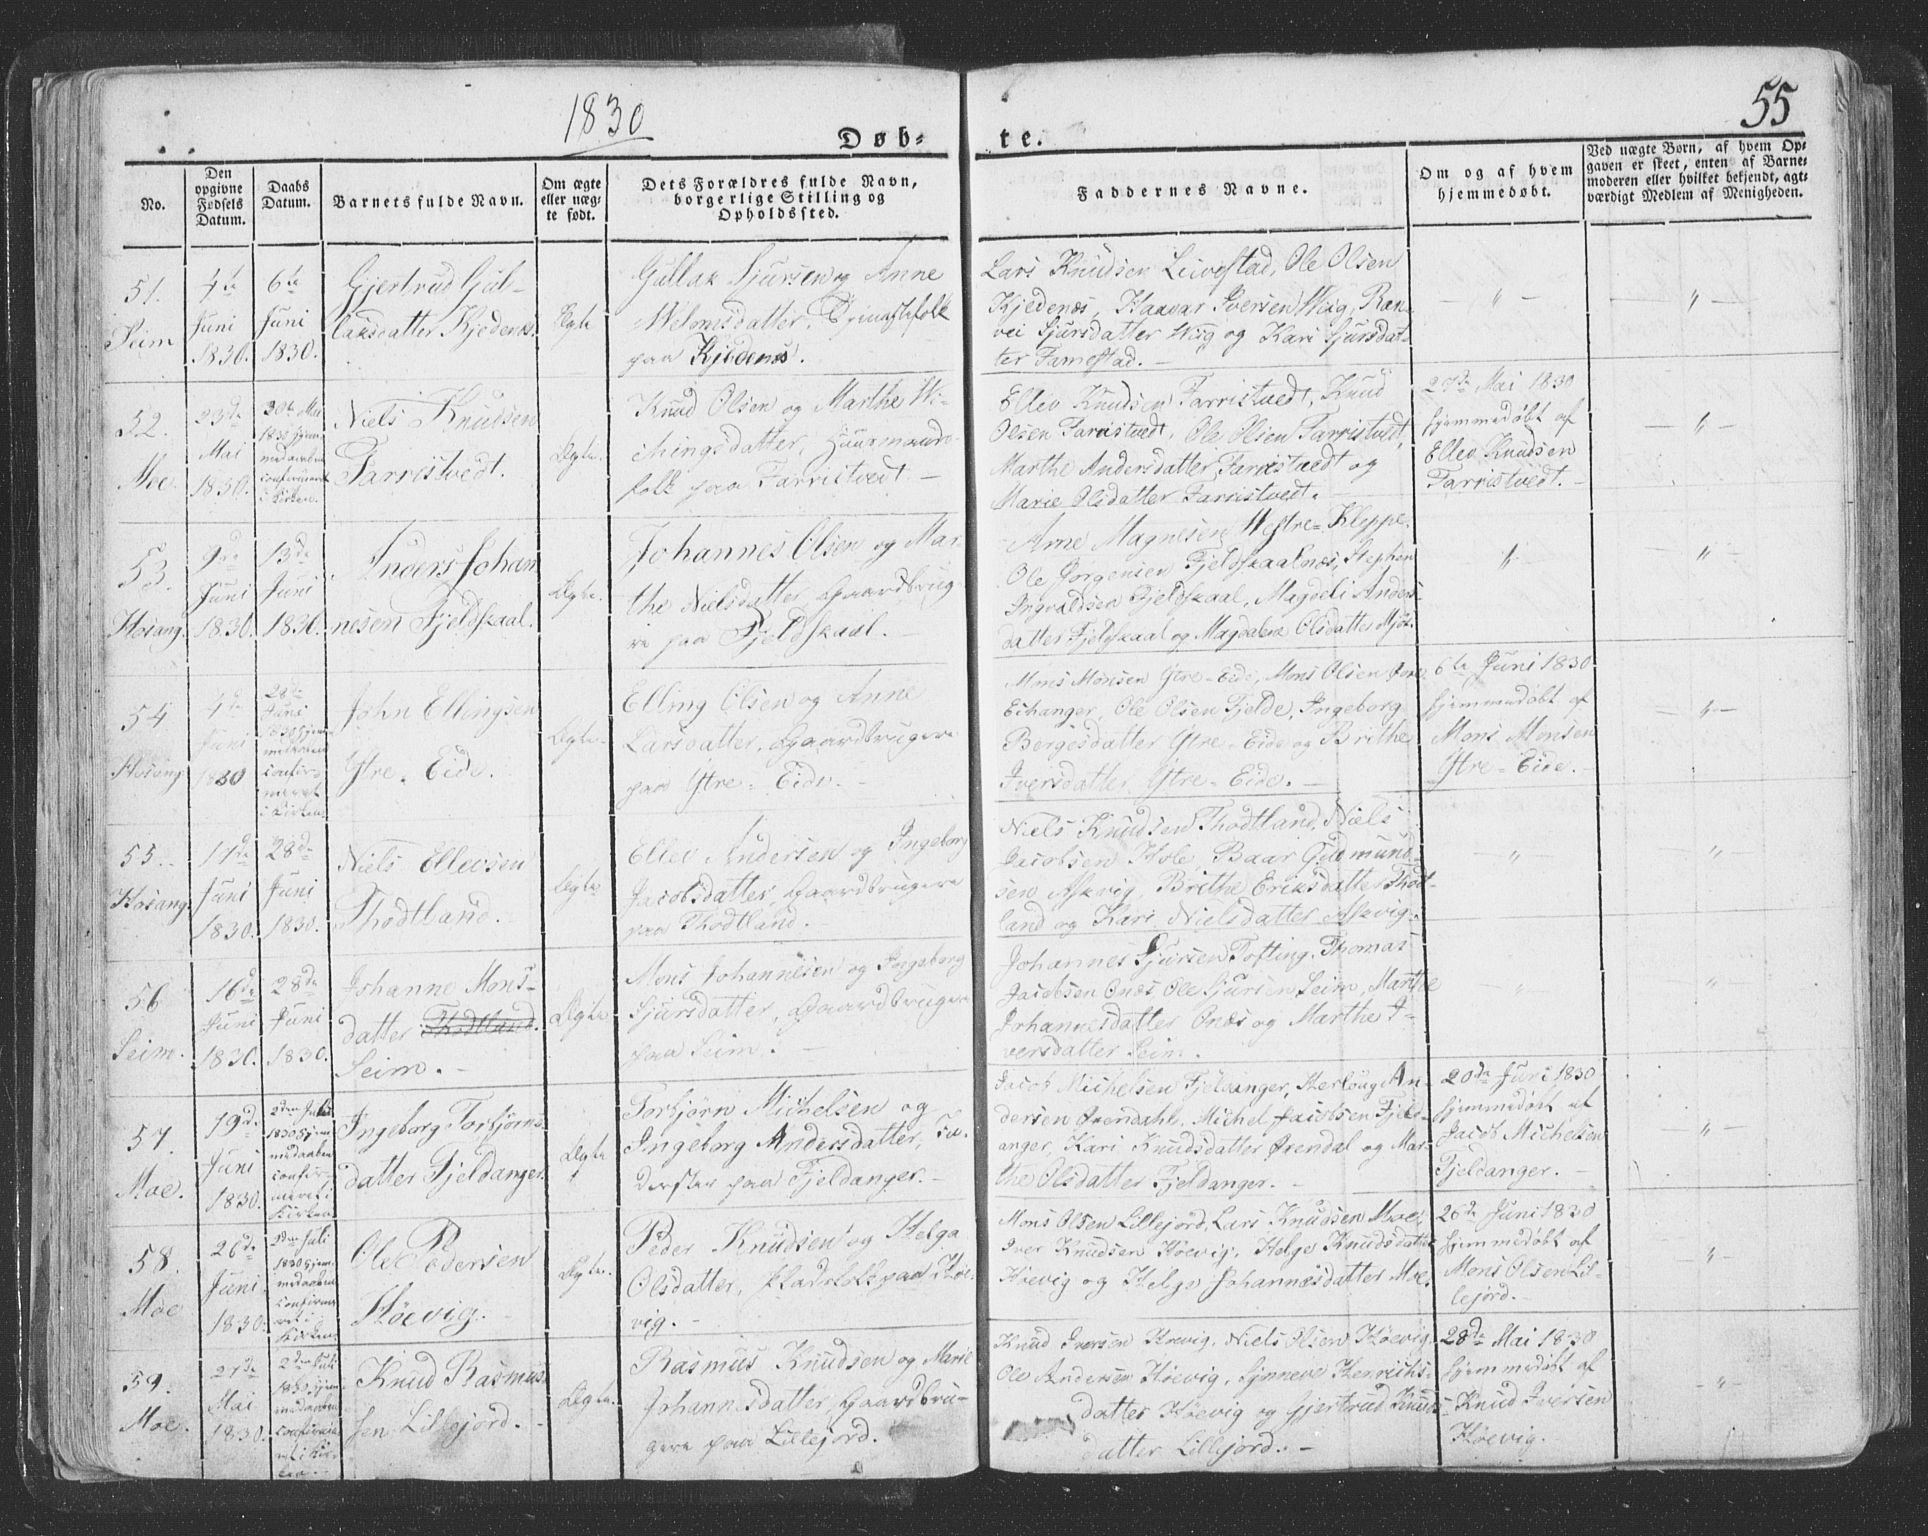 1830
55
Døb-
te.
No.
Den
opgivne
Fødsels
Datum.
Daabs
Datum.
Barnets fulde Navn.
Om ægte
eller næg-
te født.
Dets Forældres fulde Navn,
borgerlige Stilling og
Opholdssted.
Faddernes Navne.
Om og af hvem
hjemmedøbt.
Ved nægte Børn, af hvem Op-
gaven er skeet, enten af Barne-
moderen eller hvilket bekjendt, agt-
værdigt Medlem af Menigheden.
51.
Seim
4de
Juni
1830.
6te
Juni
1830.
Gjertrud Gul-
laksdatter Kjedenes
Ægte
Gullak Sjursen og Anne
paa Kjedenes.
Lars Knudsen Livestad, Ole Olsen
Kjedenæs, Haavar Iversen Wiig, Ran-
vei Sjursdatter Wiig og Kari Sjursdat-
ter Famestad. -
52.
Moe.
23de
Mai
1830.
30te Mai
1830 hjem-
medaaben
confirmeret
i Kirken.
Niels Knudsen
Farristvedt.
Ægte.
Knud Olsen og Marthe Wi-
chingsdatter, Huusmands-
folk paa Farristvedt -
Ellev Knudsen Farristvedt, Knud
Olsen Farristvedt, Ole Olsen Farristvedt,
Marthe Andersdatter Farristvedt og
Marie Olsdatter Farristvedt.
27de Mai 1830
hjemmedøbt af
Ellev Knudsen
Farristvedt. -
53.
Hosang.
9de
Juni
1830.
13de
Juni
1830.
Anders Johan-
nesen Fjeldskaal.
Ægte.
Johannes Olsen og Mar-
the Nielsdatter, Gaardbrug-
re paa Fjeldskaal. -
Arne Magnesen Westre-Kleppe.
Ole Jørgensen Fjeldskaalnæs, Stephen
Ingvaldsen Fjeldskaal, Magdeli Anders-
datter Fjeldskaal og Magdalene Olsdatter Mjøs.
54
Hosang
4de
Juni
1830
28de
Juni
1830 hjem-
medaaben
confir-
meret
i Kirken.
John Ellingsen
Ytre-Eide.
Ægte.
Elling Olsen og Anne
Larsdatter, Gaardbrugere
paa Ytre-Eide. -
Mons Monsen Ytre-Eide, Mons Olsen
Eihanger, Ole Olsen Fjelde, Ingeborg
Bergesdatter Ytre-Eide og Brithe
Iversdatter Ytre-Eide. -
6te Juni 1830
hjemmedøbt af
Mons Monsen
Ytre-Eide. -
55.
Hosang.
17de
Juni
1830.
28de
Juni
1830.
Niels Ellevsen
Thodtland.
Ægte
Ellev Andersen og Ingeborg
Jacobsdatter, Gaardbrugere
paa Thodtland. -
Niels Knudsen Thodtland, Niels
Jacobsen Hole, Baar Gudmund-
sen Askvig, Brithe Eriksdatter Thodt-
land og Kari Nielsdatter Askvig.
56
Seim.
16de
Juni
1830.
28de
Juni
1830.
Johanne Mons-
datter Thodtland.
Seim. -
Ægte
Mons Johannesen og Ingeborg
Sjursdatter, Gaardbrugere
paa Seim. -
Johannes Sjursen Tofting, Thomas
Jacobsen Onæs, Ole Sjursen Seim, Marthe
Johannesdatter Onæs og Marthe I-
versdatter Seim.
57.
Moe.
19de
Juni
1830.
2den Juli
1830 hjem-
medaaben
confir-
meret i
Kirken.
Ingeborg Torbjørns-
datter Fjeldanger.
Ægte
Torbjørn Michelsen og
Ingeborg Andersdatter,
paa Fjeldanger. -
Jacob Michelsen Fjeldanger, Herlaug An-
dersen Michel Jacobsen Fjeld-
anger, Kari Knudsdatter og Mar-
the Olsdatter Fjeldanger. -
20de Juni 1830
hjemmedøbt af
Jacob Michelsen
Fjeldanger. -
58.
Moe
26de
Juni
1830.
2den Juli
1830 hjem-
medaaben
confirme-
ret i
Kirken.
Ole Pedersen
Høevig. -
Ægte.
Peder Knudsen og Helga
Olsdatter, paa Høe-
vig. -
Mons Olsen Lillejord, Lars Knudsen Moe,
Iver Knudsen Høevig, Helge Knudsdatter
Høevig og Helge Johannesdatter Moe.
26de Juni 1830
hjemmedøbt af
Mons Olsen Lil-
lejord. -
59.
Moe.
27de
Mai
1830.
2den Juli
1830 hjem-
medaaben
Knud Rasmus-
sen Lillejord. -
Ægte.
Rasmus Knudsen og Marie
Johannesdatter, Gaardbru-
gere paa Lillejord.
Knud Iversen Høevig, Niels Olsen Høevig,
Ole Andersen Høevig, Synneve Henrichs-
datter Høevig og Gjertrud Knuds-
datter Lillejord. -
28de Mai 1830
hjemmedøbt af
Knud Iversen
Høevig.